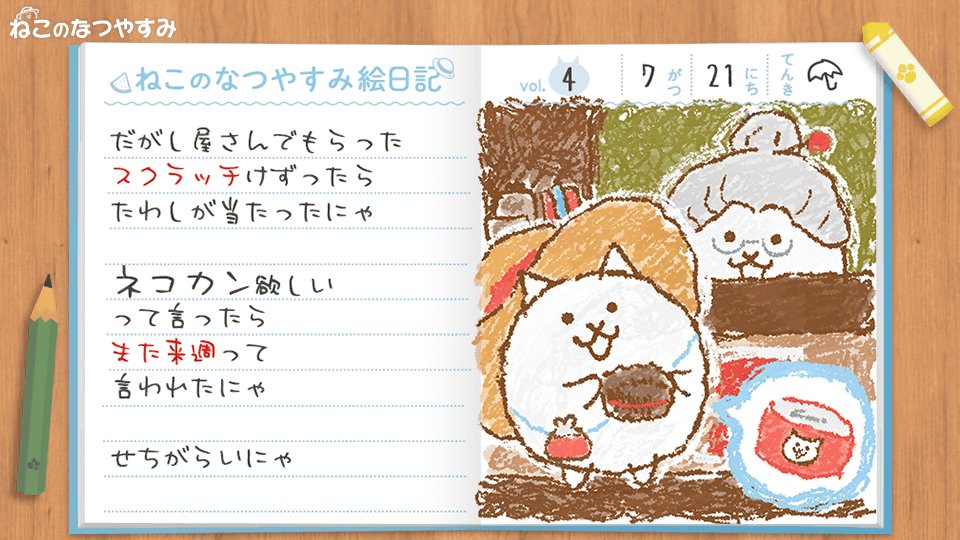 ねこのなつやすみ
ねこのなつやすみ絵日記
vol. 4 7がつ 21にち てんき
だがし屋さんでもらった
スクラッチけずったら
たわしが当たったにゃ
ネコカン欲しい
って言ったら
また来週って
言われたにゃ
せちがらいにゃ